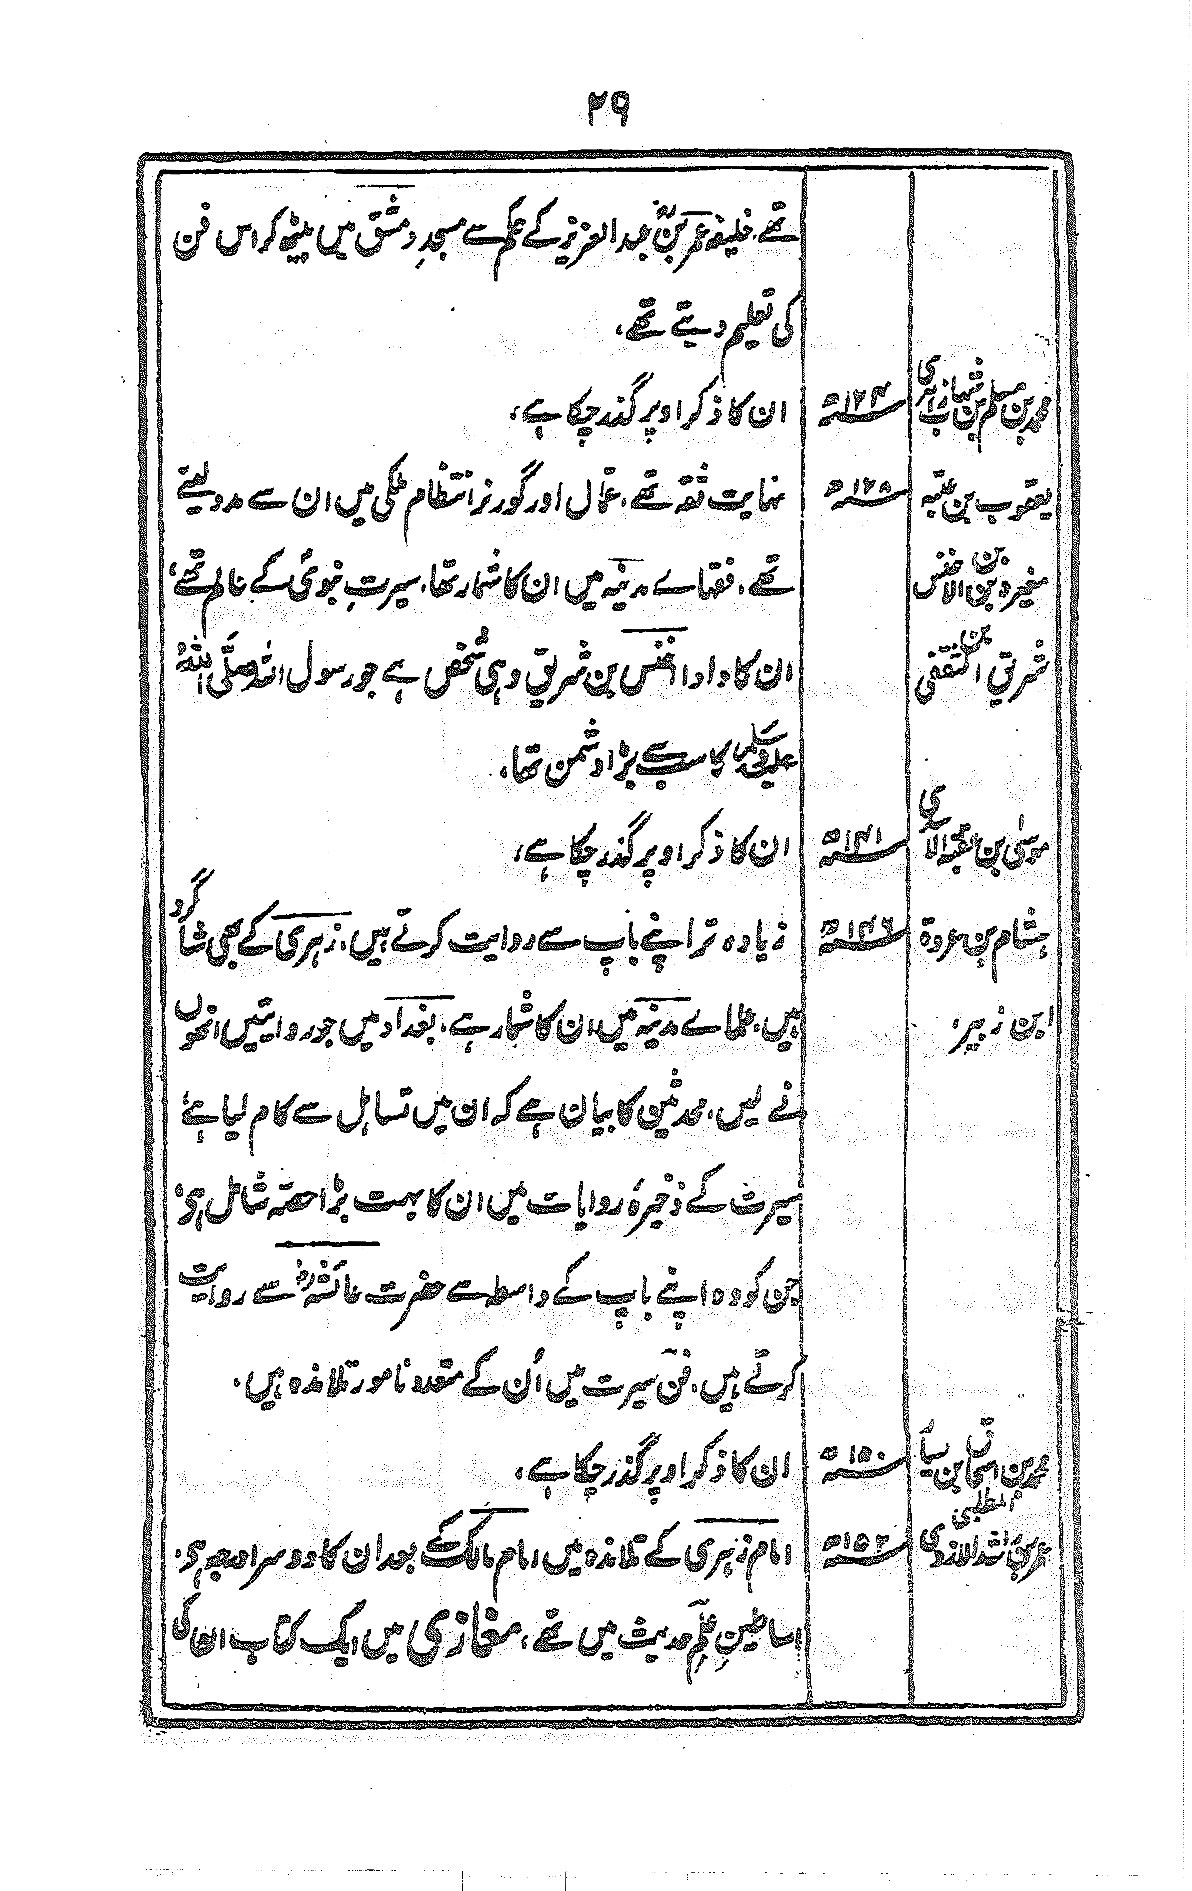 ۲۹
تھے، خلیفہ عمر بن عبدالعزیز کے حکم سے مسجدِ دمشق میں بیٹھ کر اس فن
کی تعلیم دیتے تھے،
محمد بن مسلم بن شہاب زہری ۱۲۴ھ ان کا ذکر اوپر گذر چکا ہے،
یعقوب بن عتبہ ۱۲۸ھ نہایت ثقہ تھے، عمال اور گورنر انتظام ملکی میں ان سے مدد لیتے
مغیرہ بن الاخنس بن تھے، فقہائے مدینہ میں ان کا شمار تھا، سیرتِ نبویؐ کے عالم تھے،
شریق الثقفی ان کا دادا اخنس بن شریق وہی شخص ہے جو رسول اللہ صلی اللہ
علیہ وسلم کا سب سے بڑا دشمن تھا،
موسیٰ بن عقبہ الاسدی ۱۴۱ھ ان کا ذکر اوپر گذر چکا ہے،
ہشام بن عروۃ ۱۴۶ھ زیادہ تر اپنے باپ سے روایت کرتے ہیں، زہری کے بھی شاگرد
ابن زبیر، ہیں، علمائے مدینہ میں ان کا شمار ہے، بغداد میں جو روایتیں انھوں
نے لیں، محدثین کا بیان ہے کہ ان میں تساہل سے کام لیا ہے،
سیرت کے ذخیرۂ روایات میں ان کا بہت بڑا حصہ شامل ہی،
جن کو وہ اپنے باپ کے واسطہ سے حضرت عائشہؓ سے روایت
کرتے ہیں، فن سیرت میں اُن کے متعدد نامور تلامذہ ہیں،
محمد بن اسحاق بن یسار المطلبی ۱۵۰ھ ان کا ذکر اوپر گذر چکا ہے،
راشد الازدی ۱۵۲ھ امام زہری کے تلامذہ میں امام مالک کے بعد ان کا دوسرا درجہ ہی،
اساطینِ علمِ حدیث میں تھے، مغازی میں ایک کتاب ان کی